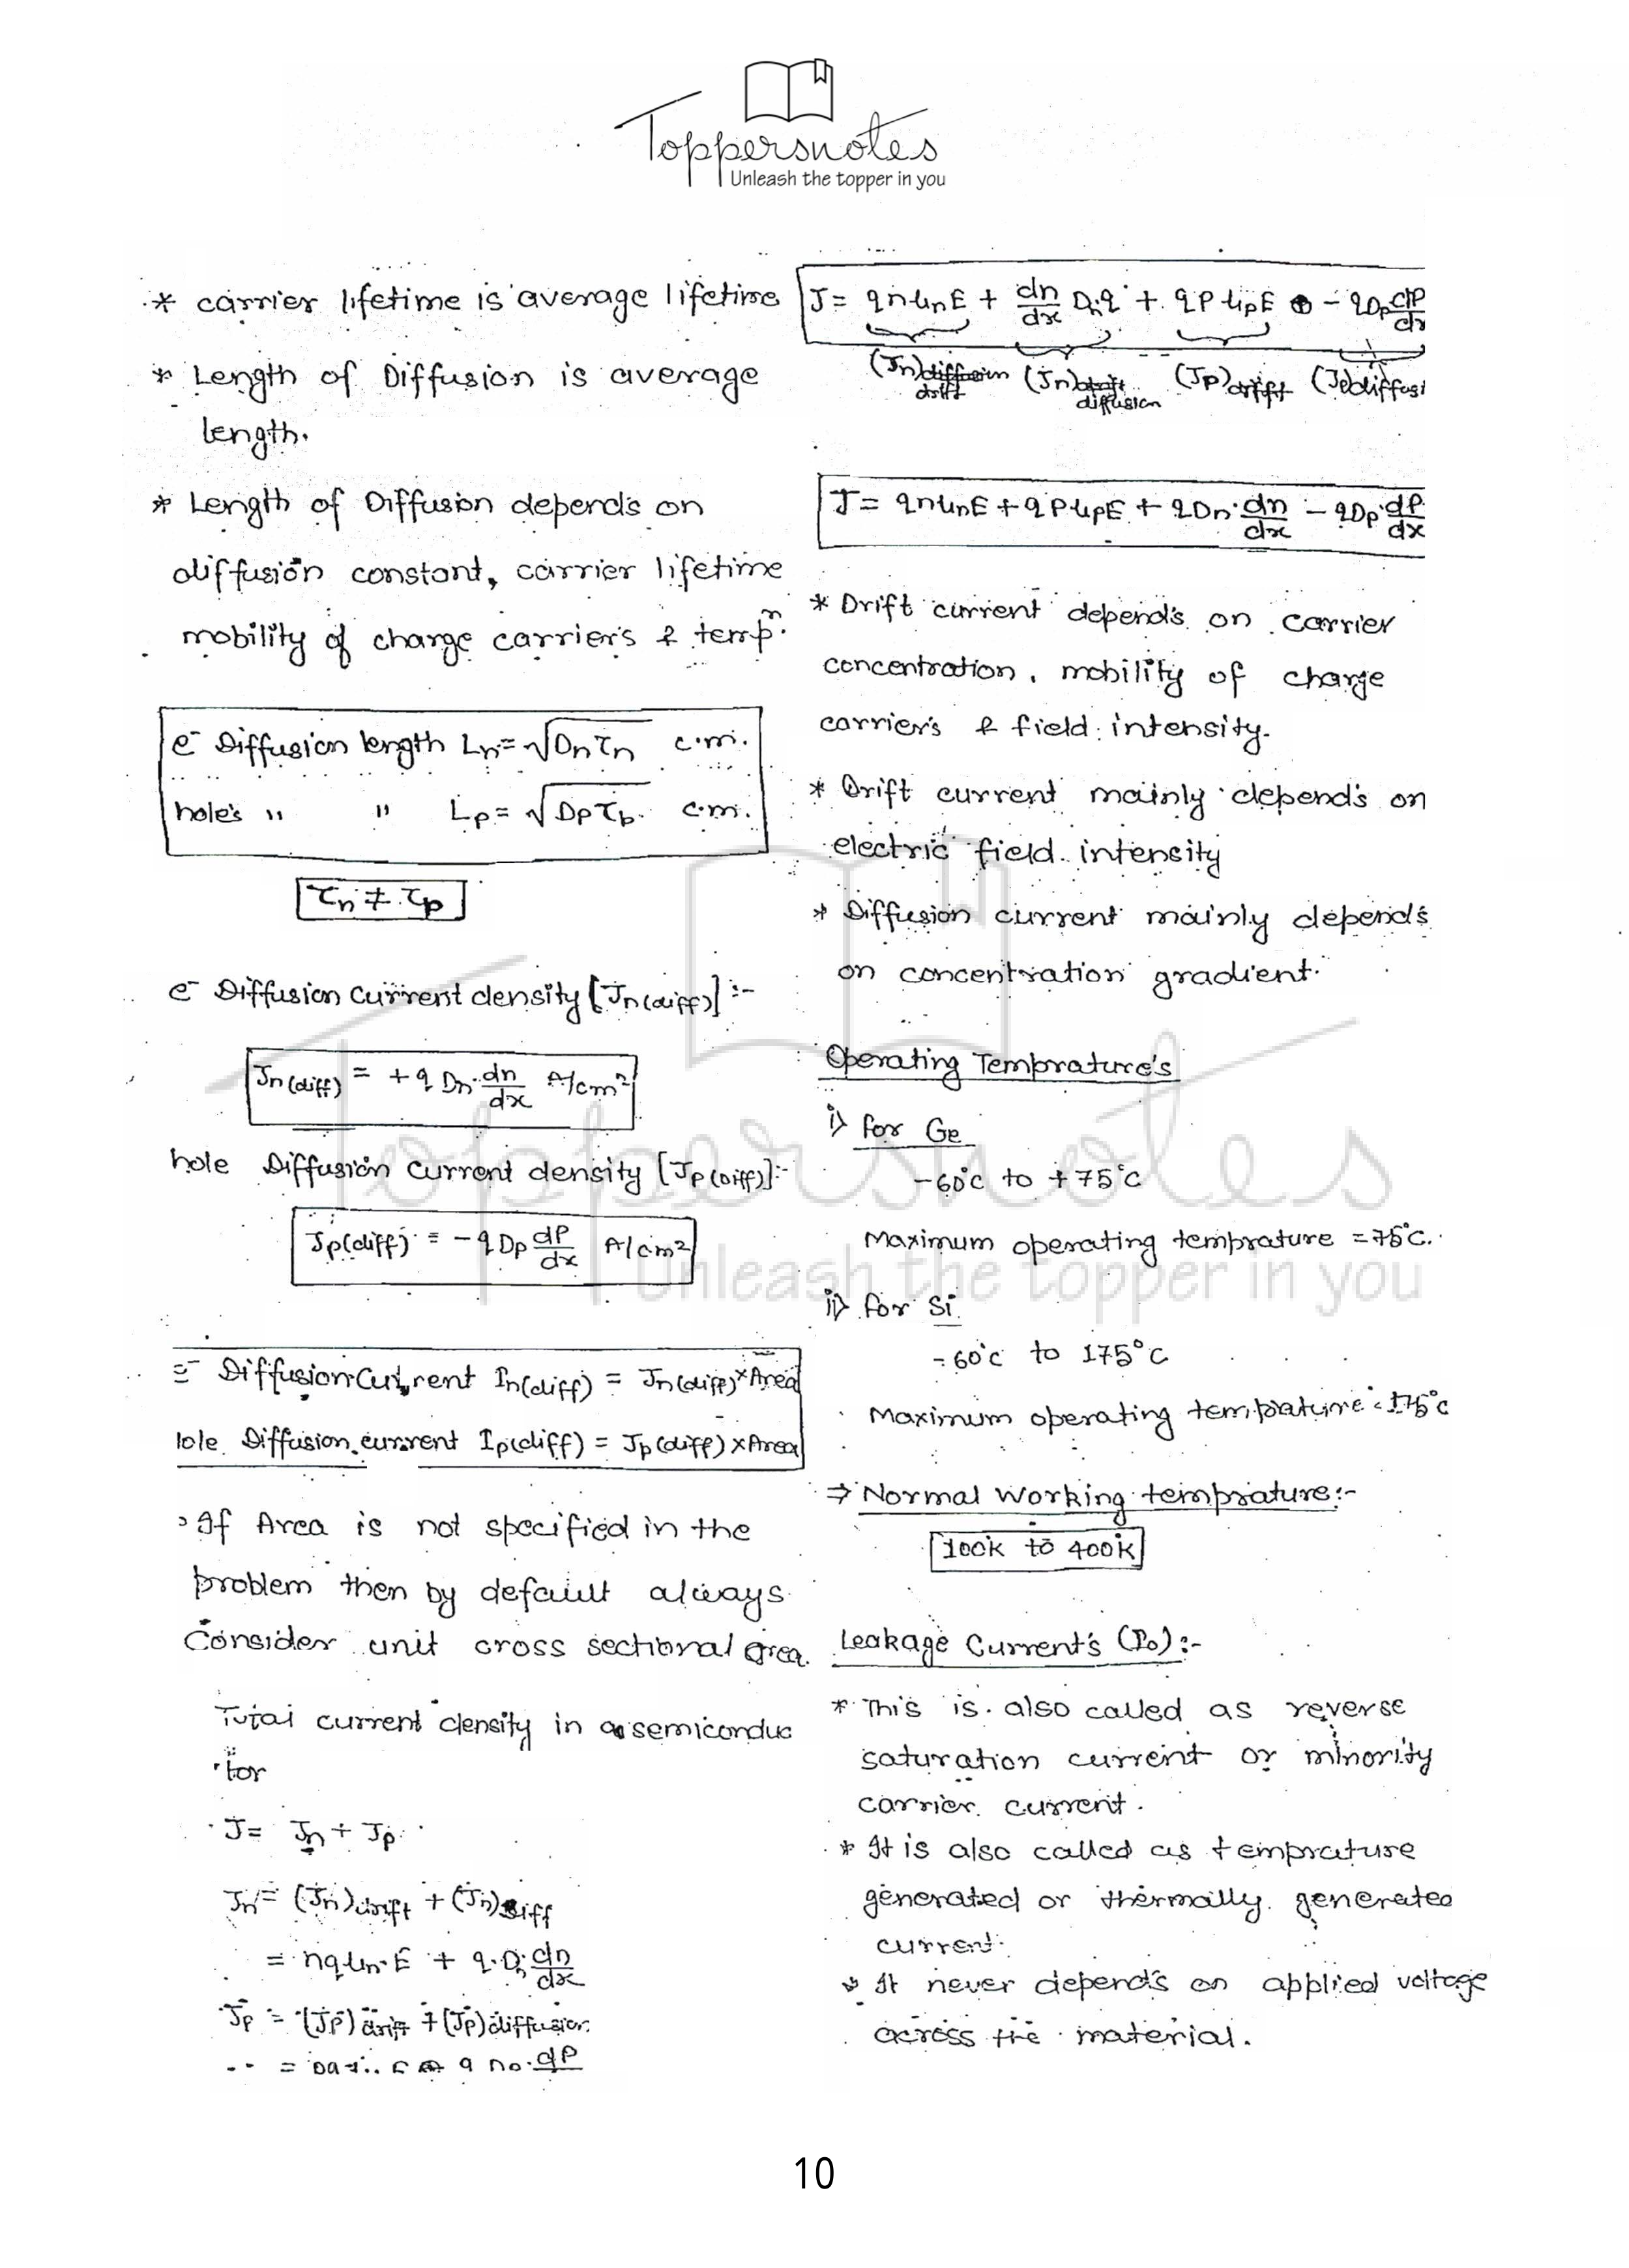 Toppersnotes
Unleash the topper in you
* carrier lifetime is average lifetime
* Length of Diffusion is average
length.
* Length of Diffusion depends on
diffusion constant, carrier lifetime
mobility of charge carriers & tempⁿ.
e⁻ Diffusion length Lₙ = √Dₙτₙ c.m.
hole's " " Lₚ = √Dₚτₚ c.m.
τₙ ≠ τₚ
e⁻ Diffusion current density [Jn(diff)] :-
Jn(diff) = +q Dn. dn/dx A/cm²
hole Diffusion current density [Jp(Diff)]:-
Jp(diff) = -q Dp dP/dx A/cm²
e⁻ Diffusion Current In(diff) = Jn(diff) × Area
Diffusion current Ip(diff) = Jp(diff) × Area
If Area is not specified in the
problem then by default always
Consider unit cross sectional area.
Total current density in a semiconduc
tor
J = Jn + Jp
Jn = (Jn)drift + (Jn)Diff
= nqμn.E + q.Dn dn/dx
Jp = (Jp)drift + (Jp)diffusion
dP
J = qnμnE + dn/dx Dnq + qPμpE - qDp dP/dx
(Jn)drift (Jn)diffusion (Jp)drift (Jp)diffusi
J = qnμnE + qPμpE + qDn.dn/dx - qDp.dP/dx
* Drift current depend's on carrier
concentration, mobility of charge
carrier's & field intensity.
* Drift current mainly depend's on
electric field intensity
* Diffusion current mainly depend's
on concentration gradient.
Operating Temprature's
i> for Ge
-60°c to +75°c
Maximum operating temprature = 75°c.
ii> for Si
-60°c to 175°c
Maximum operating temprature = 175°c
⇒ Normal working temprature:-
100k to 400k
Leakage Current's (I₀):-
* This is also called as reverse
saturation current or minority
carrier current.
* It is also called as temprature
generated or thermally generated
current.
* It never depend's on applied voltage
across the material.
10